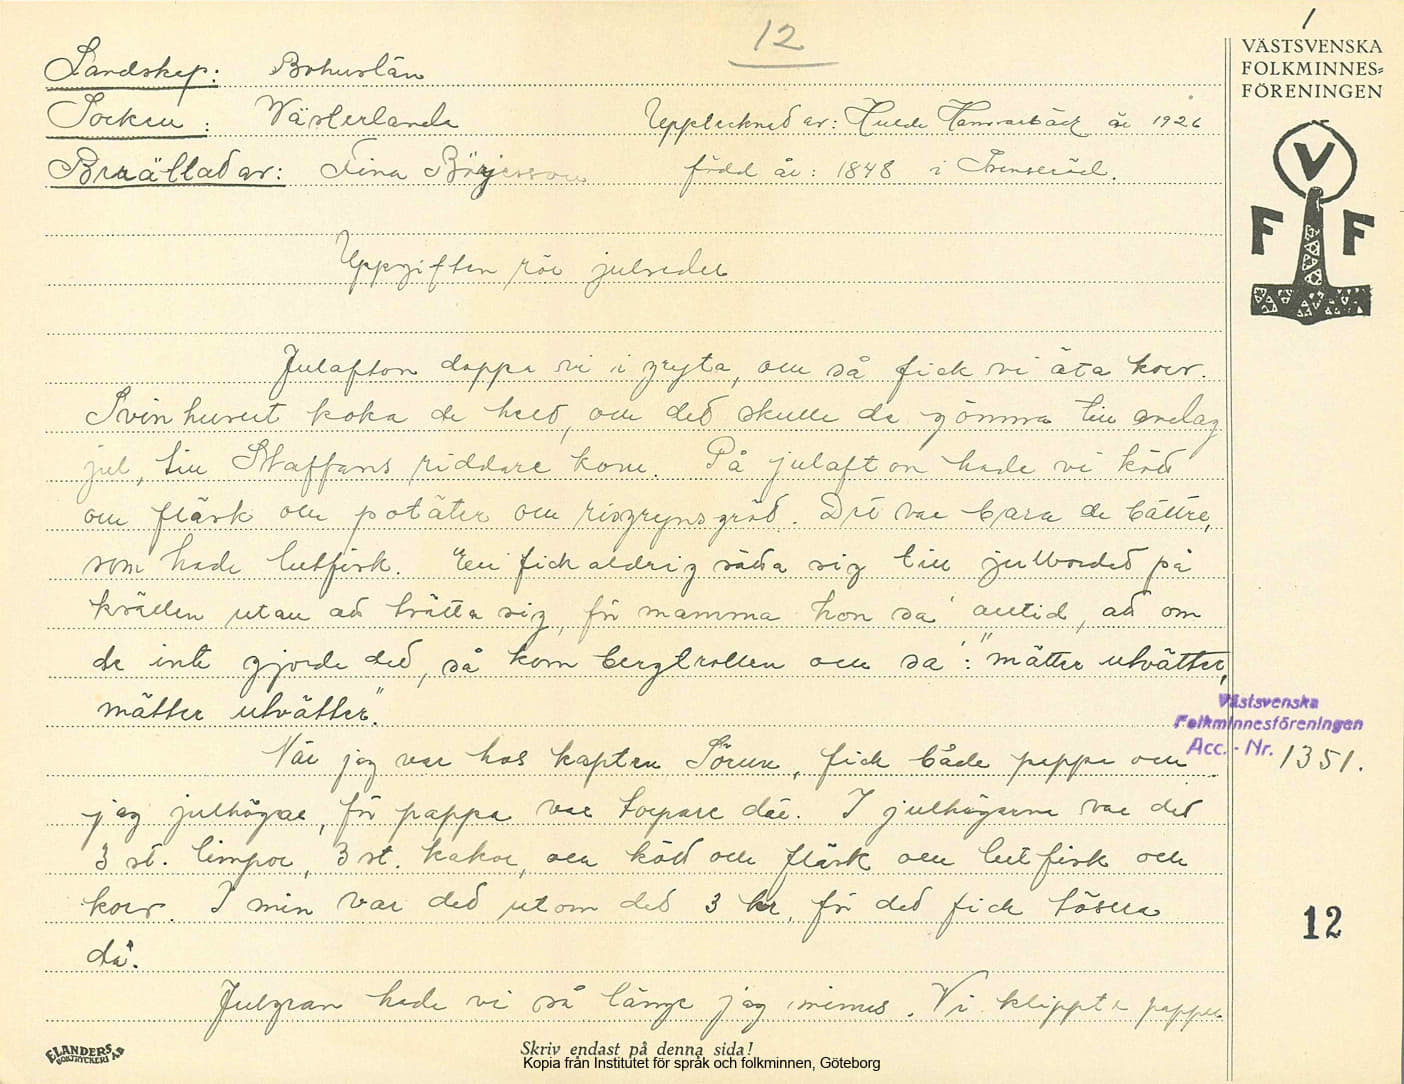 12
1
VÄSTSVENSKA
FOLKMINNES=
FÖRENINGEN
V
F F
Landskap: Bohuslän
Socken: Västerlanda
Upptecknad av: Hulda Hammarbäck år 1926
Berättad av: Tina Börjesson
född år: 1848 i
Uppgiften rör julseder
Julafton doppa vi i gryta, ou så fick vi äta korv.
Svinhuvet koka de helt, ou det skulle de gömma till andag
jul, till Staffans riddare kom. På julafton hade vi kött
ou fläsk ou potäter ou risgrynsgröd. Det var bara de bättre,
som hade lutfisk. En fick aldrig sätta sig till julbordet på
kvällen utan att tvätta sig, för mamma hon sa' alltid, att om
de inte gjorde det, så kom bergtrollen ou sa': "mätter utvätter,
mätter utvätter."
Västsvenska
Folkminnesföreningen
Acc. - Nr. 1351.
När jag var hos kapten Sörun, fick både pappa ou
jag julhögar, för pappa var torpare där. I julhögarna var det
3 st. limpor, 3 st. kakor, ou kött ou fläsk ou lutfisk ou
korv. I min var det utom det 3 kr, för det fick tösera
då.
12
Julgran hade vi så länge jag minns. Vi klippte papper
ELANDERS BOKTRYCKERI AB
Skriv endast på denna sida!
Kopia från Institutet för språk och folkminnen, Göteborg